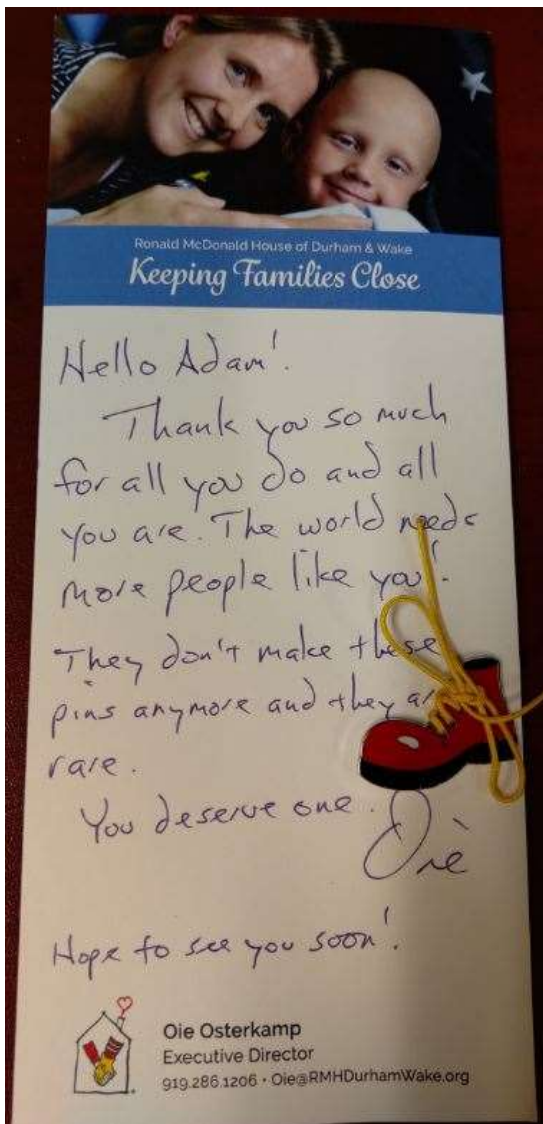 Ronald McDonald House of Durham & Wake
Keeping Families Close
Hello Adam!
Thank you so much
for all you do and all
you are. The world needs
more people like you!
They don't make these
pins anymore and they ar
rare.
You deserve one.
Oie
Hope to see you soon!
Oie Osterkamp
Executive Director
919.286.1206 • Oie@RMHDurhamWake.org